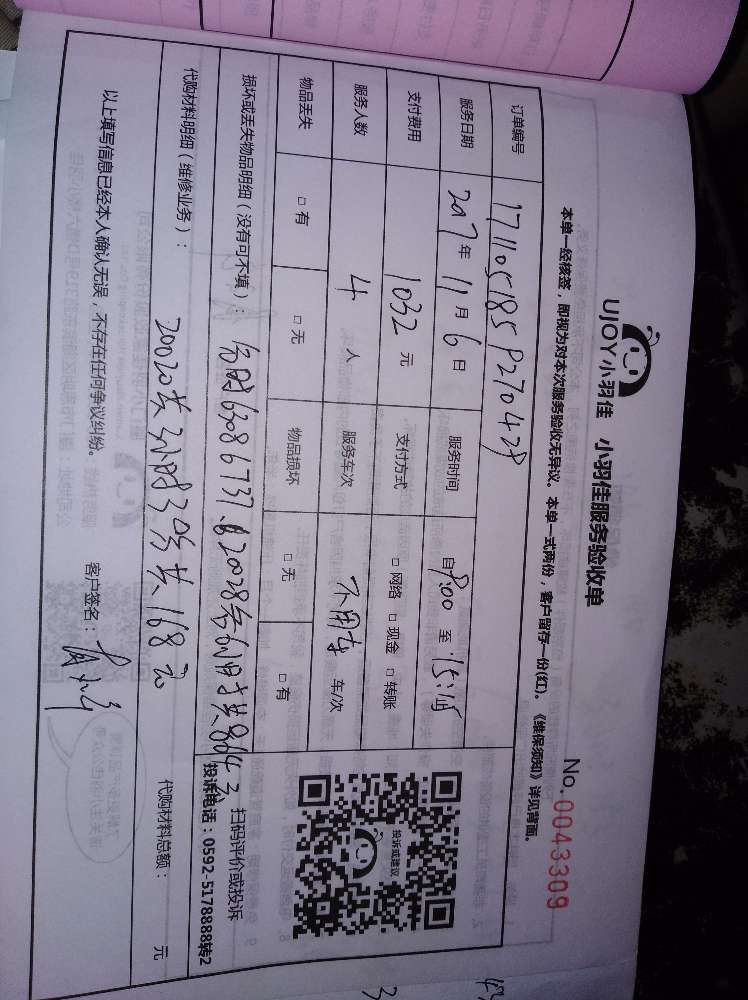 UJOY小羽佳 小羽佳服务验收单
No.0043309
本单一经核签，即视为对本次服务验收无异议。本单一式两份，客户留存一份(红)。《维保须知》详见背面。
订单编号 171105185P270428
服务日期 2017年11月6日 服务时间 自8:00至15:
支付费用 1032元 支付方式 □网络 □现金 □转账
服务人数 4人 服务车次 不用车 车/次
物品丢失 □有 □无 物品损坏 □无 □有
投诉或建议
扫码评价或投诉
投诉电话：0592-5178888转2
损坏或丢失物品明细（没有可不填）： 6386737 20028 6小时共864元
代购材料明细（维修业务）： 20020 共 小时3 共168元
代购材料总额： 元
以上填写信息已经本人确认无误，不存在任何争议纠纷。 客户签名：